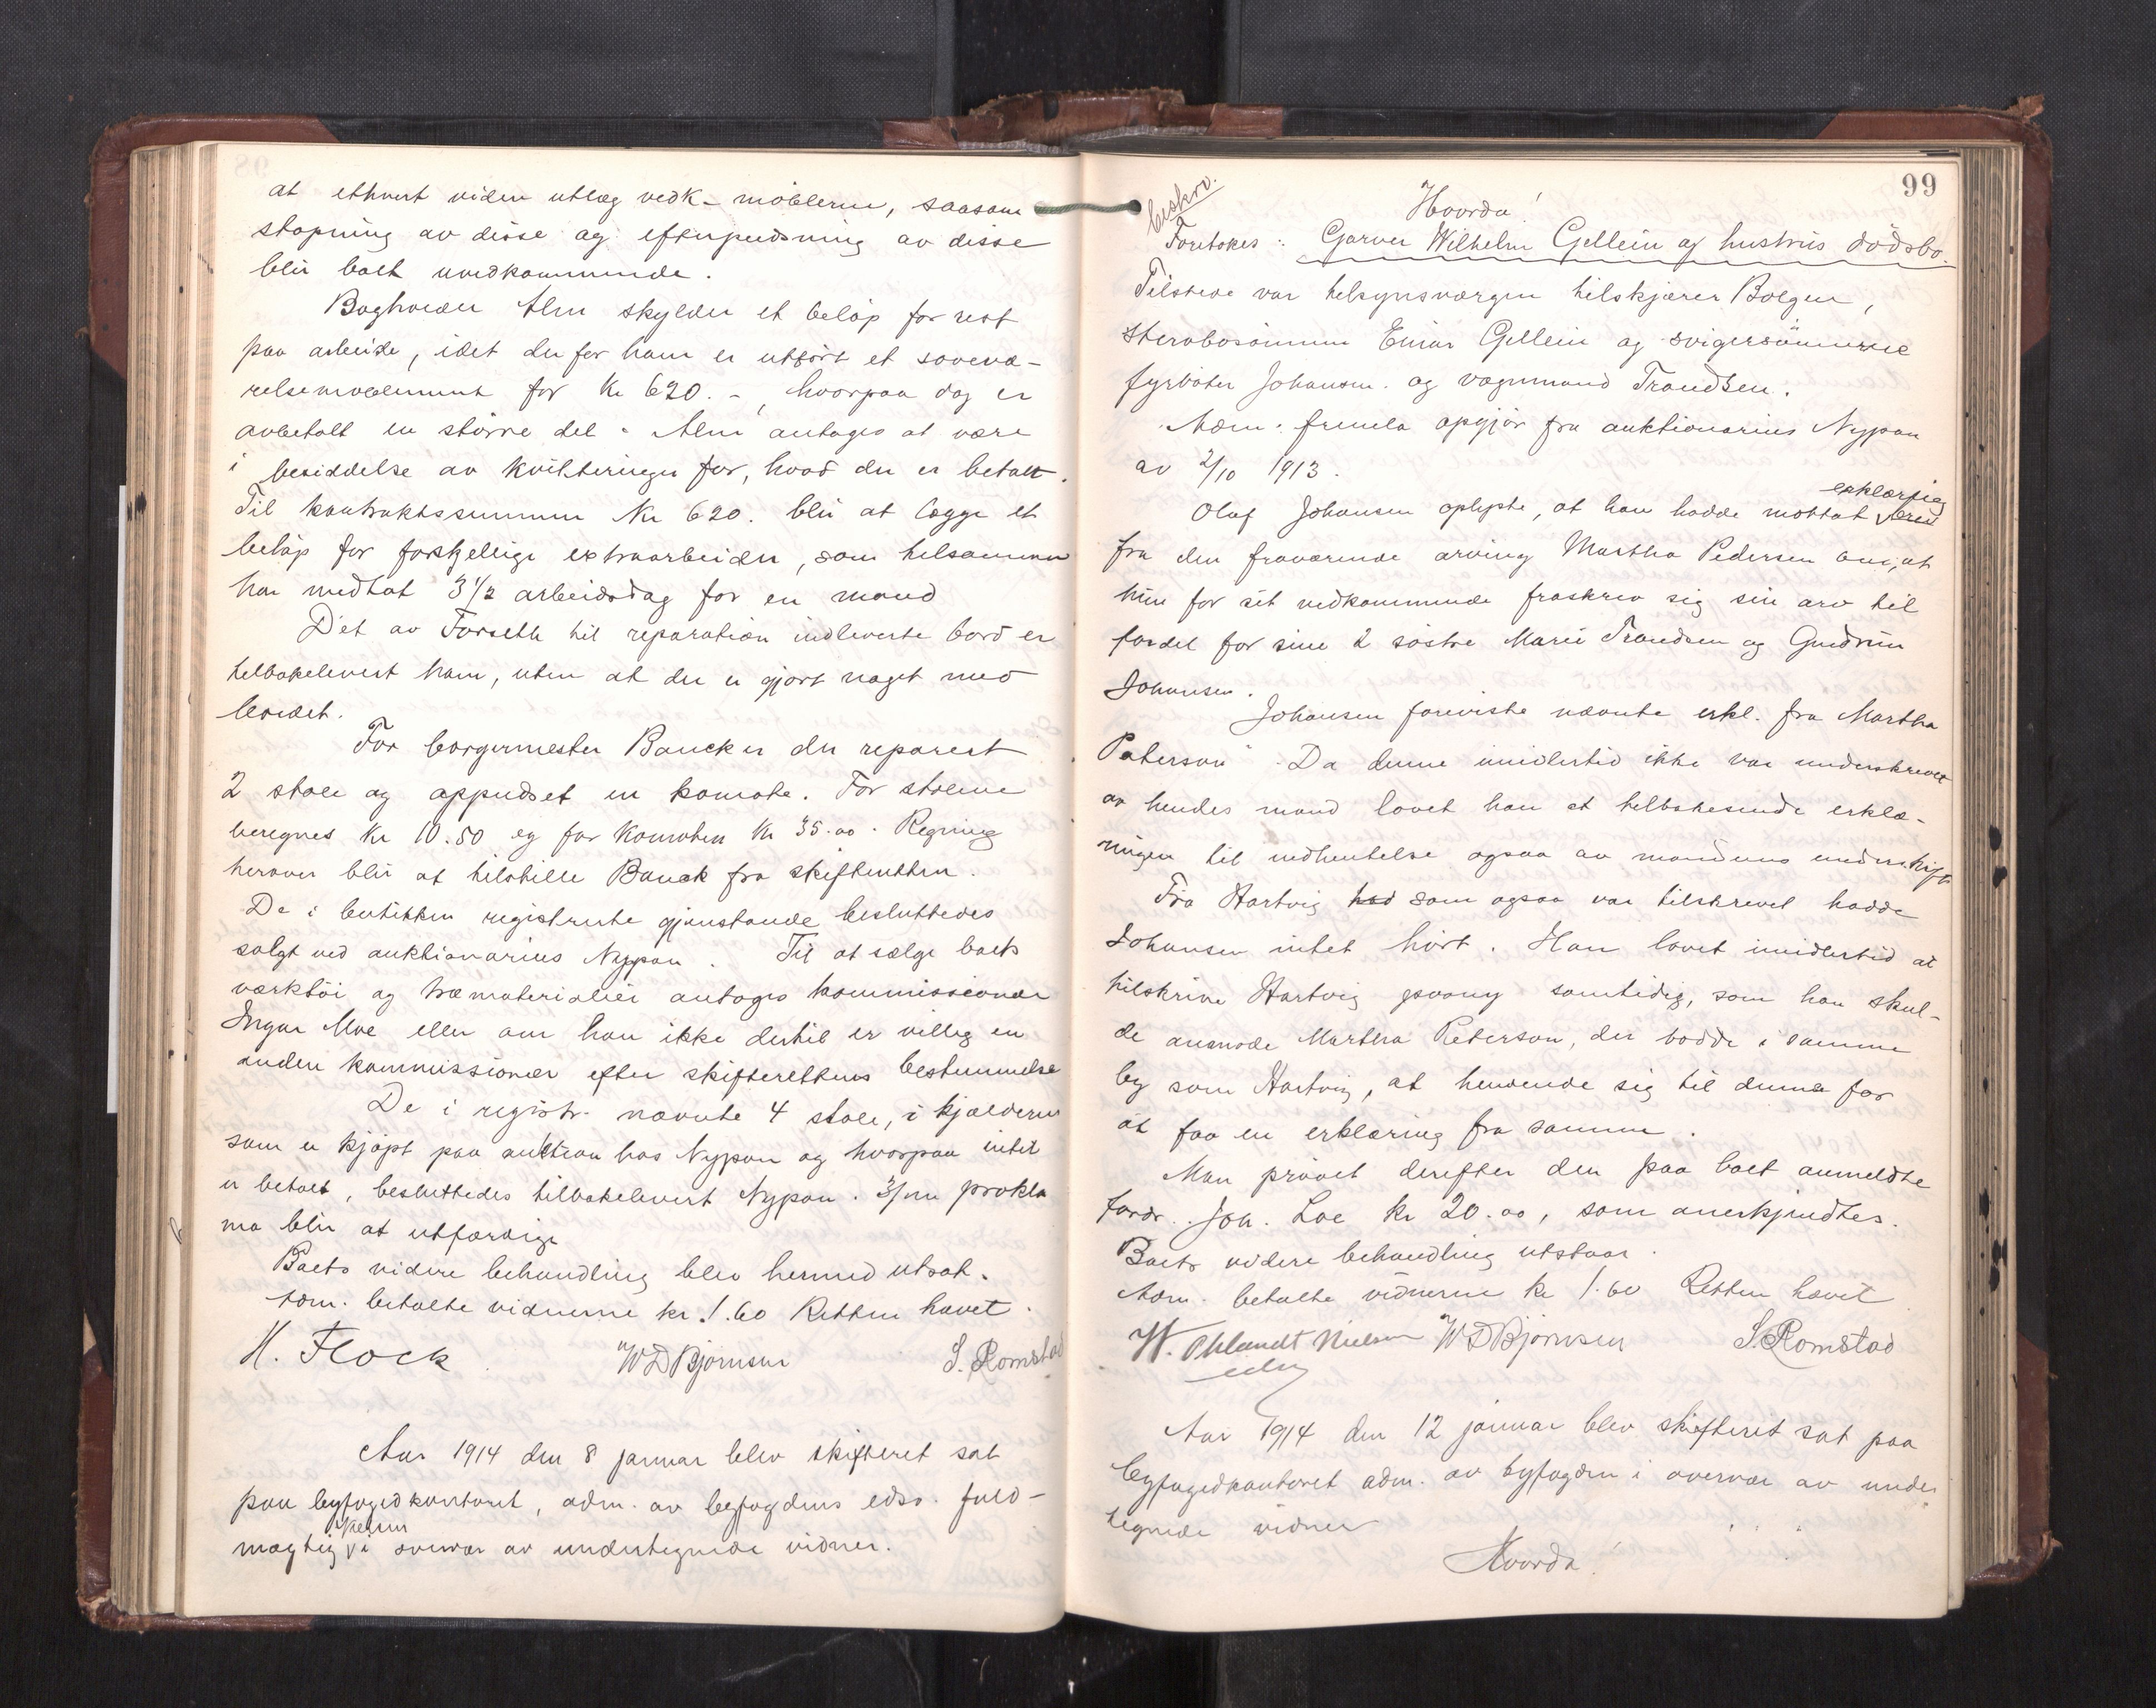 at ethvert videre utlæg vedk. møblerne, saasom
stopning av disse og efterpudsning av disse
blir boet uvedkommende.
Bogholder Alm skylder et beløp for rest
paa arbeide, idet der for ham er utført et sovevæ-
relsemøblement for kr 620.-, hvorpaa dog er
avbetalt en større del. Alm antages at være
i besiddelse av kvitteringer for, hvad der er betalt.
Til kontraktssummen kr 620. blir at lægge et
beløp for forskjellige extraarbeider, som tilsammen
har medtat 3 1/2 arbeidsdag for en mand
Det av Forseth til reparation indleverte bord er
tilbakelevert ham, uten at der er gjort noget med
bordet.
For borgermester Bauck er der reparert
2 stole og oppudset en komode. For stolene
beregnes kr 10.50 og for komoden kr 35.00. Regning
herover blir at tilstille Bauck fra skifteretten.
De i butikken registrerte gjenstande besluttedes
solgt ved auktionarius Nypan. Til at sælge boets
værktøi og træmaterialier antages kommissionær
Ingvar Moe eller om han ikke dertil er villig en
anden kommissionær efter skifterettens bestemmelse
De i registr. nævnte 4 stole, i kjælderen
som er kjøpt paa auktion hos Nypan og hvorpaa intet
er betalt, besluttedes tilbakelevert Nypan. 3/m prokla
ma blir at utfærdige
Boets videre behandling blev hermed utsat.
Adm. betalte vidnerne kr. 1.60 Retten hævet.
H. Flock W D Bjørnsen S. Romstad
Aar 1914 den 8 januar blev skifteret sat
paa byfogedkontoret, adm. av byfogdens edsv. fuld-
mægtig i overvær av undertegnede vidner.
99
beskrv.
Hvorda!
Foretokes: Garver Wilhelm Gellein og hustrus dødsbo.
Tilstede var tilsynsværgen tilskjærer Bolgen,
stervbosønnen Einar Gellein og svigersønnerne
fyrbøter Johansen og vognmand Trondsen.
Adm. fremla opgjør fra auktionarius Nypan
av 2/10 1913.
erklæring
Olaf Johansen oplyste, at han hadde mottat
fra den fraværende arving Martha Pedersen om, at
hun for sit vedkommende fraskrev sig sin arv til
fordel for sine 2 søstre Marie Trondsen og Gudrun
Johansen.
Johansen foreviste nævnte erkl. fra Martha
Peterson. Da denne imidlertid ikke var underskrevet
av hendes mand lovet han at tilbakesende erklæ-
ringen til indhentelse ogsaa av mandens underskrift
Fra Hartvig had som ogsaa var tilskrevet hadde
Johansen intet hørt. Han lovet imidlertid at
tilskrive Hartvig paany samtidig, som han skul-
de anmode Martha Peterson, der bodde i samme
by som Hartvig, at henvende sig til denne for
at faa en erklæring fra samme.
Man prøvet derefter den paa boet anmeldte
fordr. Joh. Loe kr 20.00, som anerkjendtes.
Boets videre behandling utstaar.
Adm. betalte vidnerne kr 1.60 Retten hævet
H. Ohlandt Nielsen W D Bjørnsen S. Romstad
edsv
Aar 1914 den 12 januar blev skifteret sat paa
byfogedkontoret adm. av byfogden i overvær av under
tegnede vidner
Hvorda!